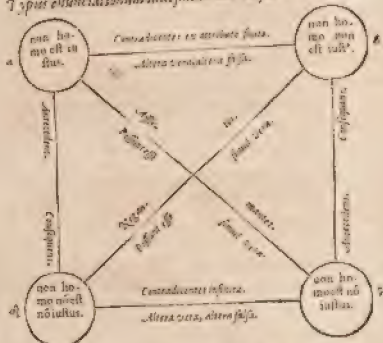 Typus enunciationum
non ho-
mo est iu
stus.
Contradicentes ex attributo finito.
Altera vera, altera falsa.
non ho-
mo non
est iustꝰ.
Antecedens.
Consequens.
Consequens.
Antecedens.
Possunt esse
simul vera.
Possunt esse
simul vera.
non ho-
mo nō est
nō iustus.
Contradicentes infinita.
Altera vera, altera falsa.
non ho-
mo est nō
iustus.